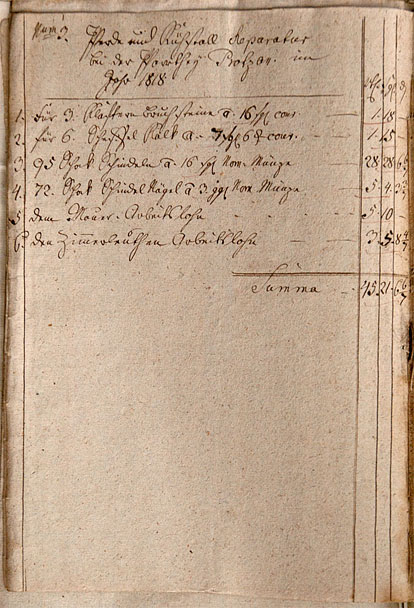 Num 3.
Pferde und Kühstall Reparatur
bei der Parothey Botzan. im
Jahr 1818.
1. Für 3. Klaftern Bruchsteine a. 16 gl conv. 1 18
2. für 6. Scheffel Kalk a 7 gl 6 d conv. 1 15
3. 95 Schok Schindeln a. 16 gl Nom. Münze 28 28 6
4. 72. Schok Schindel Nägel a 3 ggl Nom Münze 5 4 3
5. dem Mauer. Arbeitslohn 5 10
6. den Zimmerleuthen Arbeitslohn 3 5 8
Summa 45 21 6